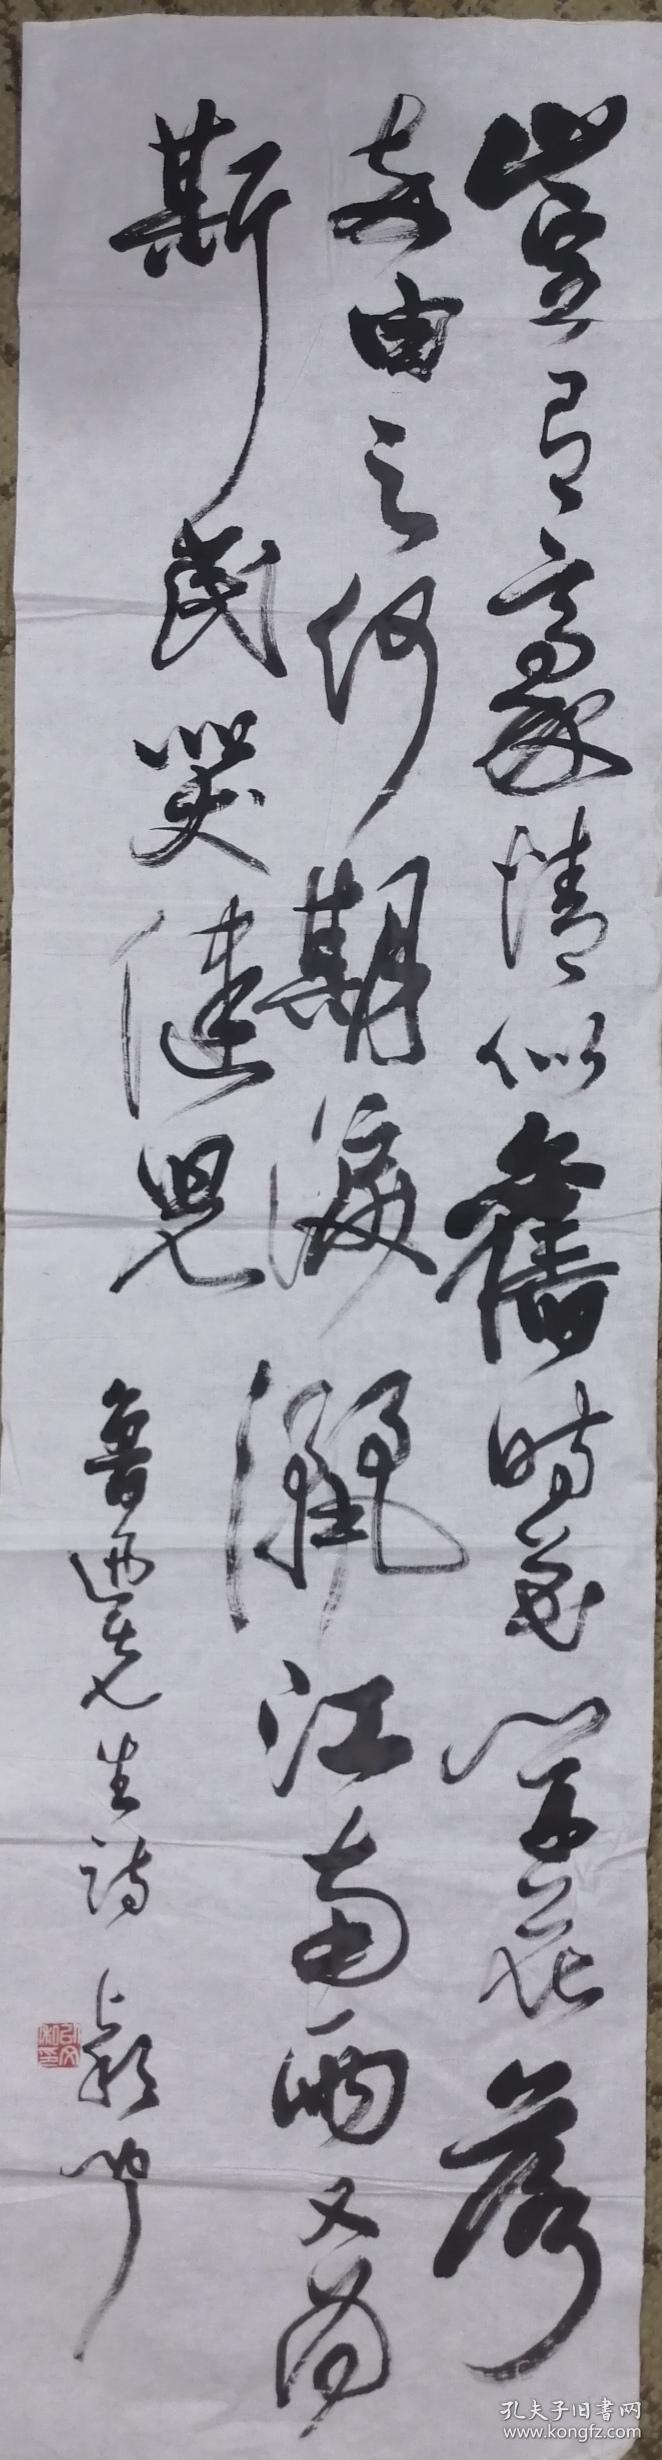 豈有豪情似舊時花開花落
兩由之何期淚灑江南雨又為
斯民哭健兒
魯迅先生詩
孔夫子旧書网
www.kongfz.com